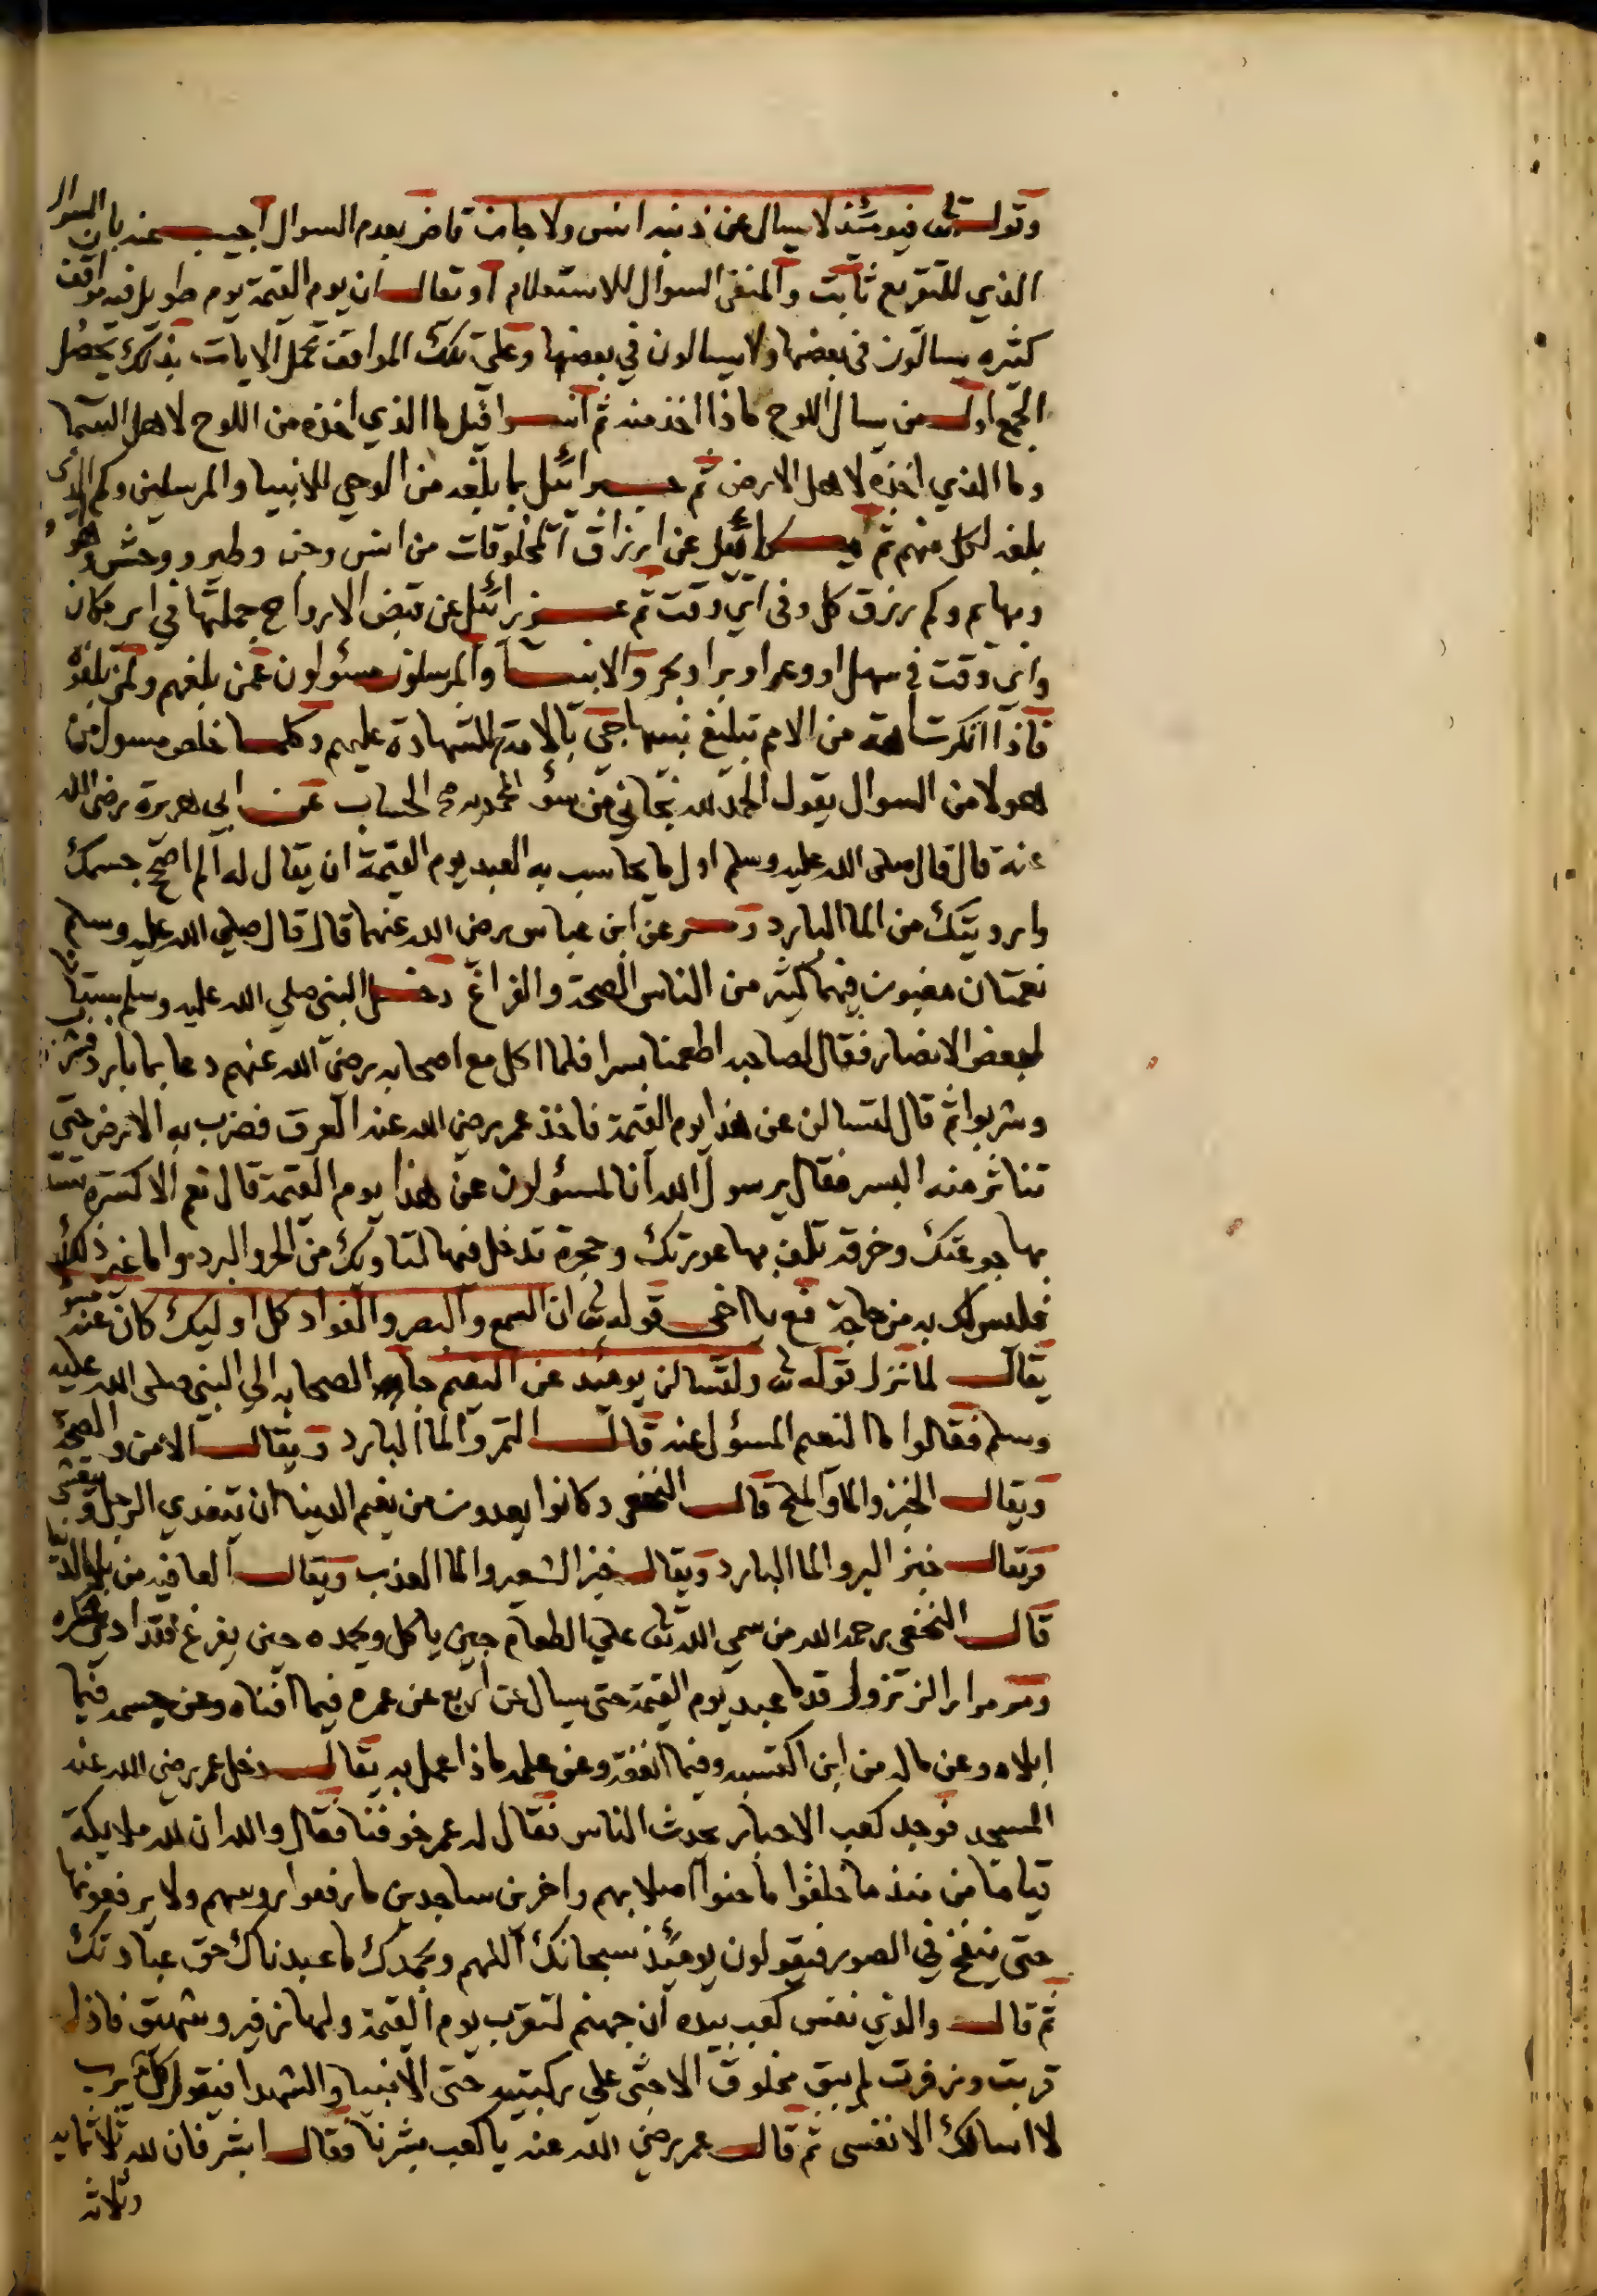 وقوله تعالى فيومئذ لا يسال عن ذنبه انس ولا جان قاض بعدم السوال اجيب عنه بان السوال
الذي للتقريع ثابت والمنفي السوال للاستعلام او تقال ان يوم القيمة يوم طويل فيه مواقف
كثيره يسالون في بعضها ولا يسالون في بعضها وعلى تلك المواقف تحمل الايات بذلك يحصل
الجمع اول من يسال اللوح ماذا اخذ منه ثم اسرافيل ما الذي اخذه من اللوح لاهل السما
وما الذي اخذه لاهل الارض ثم جبرائيل بما بلغه من الوحي للانبيا والمرسلين وكم الذي
بلغه لكل منهم ثم ميكائيل عن ارزاق المخلوقات من انس وجن وطير ووحش وهو
وبهايم وكم رزق كل وفي اي وقت ثم عزرائيل عن قبض الارواح جملتها في اي مكان
واي وقت في سهل او وعر او بر او بحر والانبيا والمرسلون مسئولون عمن بلغهم ولمن بلغوه
فاذا انكرت امة من الامم تبليغ نبيها جي بالامة للشهادة عليهم وكلما خلص مسول من
هولا من السوال يقول الحمد لله نجاني من سؤ الحساب عن ابي هريرة رضي الله
عنه قال قال صلى الله عليه وسلم اول ما يحاسب به العبد يوم القيمة ان يقال له الم اصح جسمك
وارويتك من الما البارد ومر عن ابن عباس رضي الله عنهما قال قال صلي الله عليه وسلم
نعمتان مغبون فيهما كثير من الناس الصحة والفراغ دخل النبي صلي الله عليه وسلم بستانا
لبعض الانصار فقال لصاحبه اطعمنا بسرا فلما اكل مع اصحابه رضي الله عنهم دعا بما بارد فشرب
وشربوا ثم قال لتسالن عن هذا يوم القيمة فاخذ عمر رضي الله عنه العرق فضرب به الارض حتي
تناثر منه البسر فقال يرسول الله انا لمسئولون عن هذا يوم القيمة قال نعم الا كسرة تسد
بها جوعتك وخرقة تلف بها عورتك وحجرة تدخل فيها لتاويك من الحر والبرد واما غير ذلك
فليس لك به من حاجة فع يا اخي قوله تعالى ان السمع والبصر والفواد كل اوليك كان عنه مسئو
يقال لما نزل قوله تعالى ولتسالن يوميذ عن النعيم جا الصحابه الي النبي صلى الله عليه
وسلم فقالوا ما النعيم المسؤل عنه قال التمر والما البارد ويقال الامن والصحة
ويقال الخبز والما والملح قال النخعي وكانوا يعدون من نعيم الدينا ان يتغدي الرجل ويتعشى
ويقال خبز البر والما البارد ويقال خبز الشعير والما العذب ويقال العافيه من
قال النخعي رحمه الله من سمي الله تعالى علي الطعام حين ياكل ويحمده حين يفرغ فقد ادى شكره
ومر مرارا لن تزول قدما عبد يوم القيمة حتى يسال عن اربع عن عمره فيما افناه وعن جسمه فيما
ابلاه وعن ماله من اين اكتسبه وفيما انفقه وعن علمه ماذا عمل به يقال دخل عمر رضي الله عنه
المسجد فوجد كعب الاحبار يحدث الناس فقال له عمر خوفنا فقال والله ان لله ملايكة
قياما من منذ ما خلقوا ما حنوا اصلابهم واخرين ساجدين ما رفعوا روسهم ولا يرفعونها
حتى ينفخ في الصور فيقولون يوميذ سبحانك اللهم وبحمدك ما عبدناك حق عبادتك
ثم قال والذي نفس كعب بيده ان جهنم لتقرب يوم القيمة ولها زفير وشهيق فاذا
قربت وزفرت لم يبق مخلوق الا جثى علي ركبتيه حتى الانبيا والشهدا فيقول كل يرب
لا اسالك الا نفسي ثم قال عمر رضي الله عنه يا كعب بشرنا فقال ابشر فان لله ثلاثمايه
وثلاثه